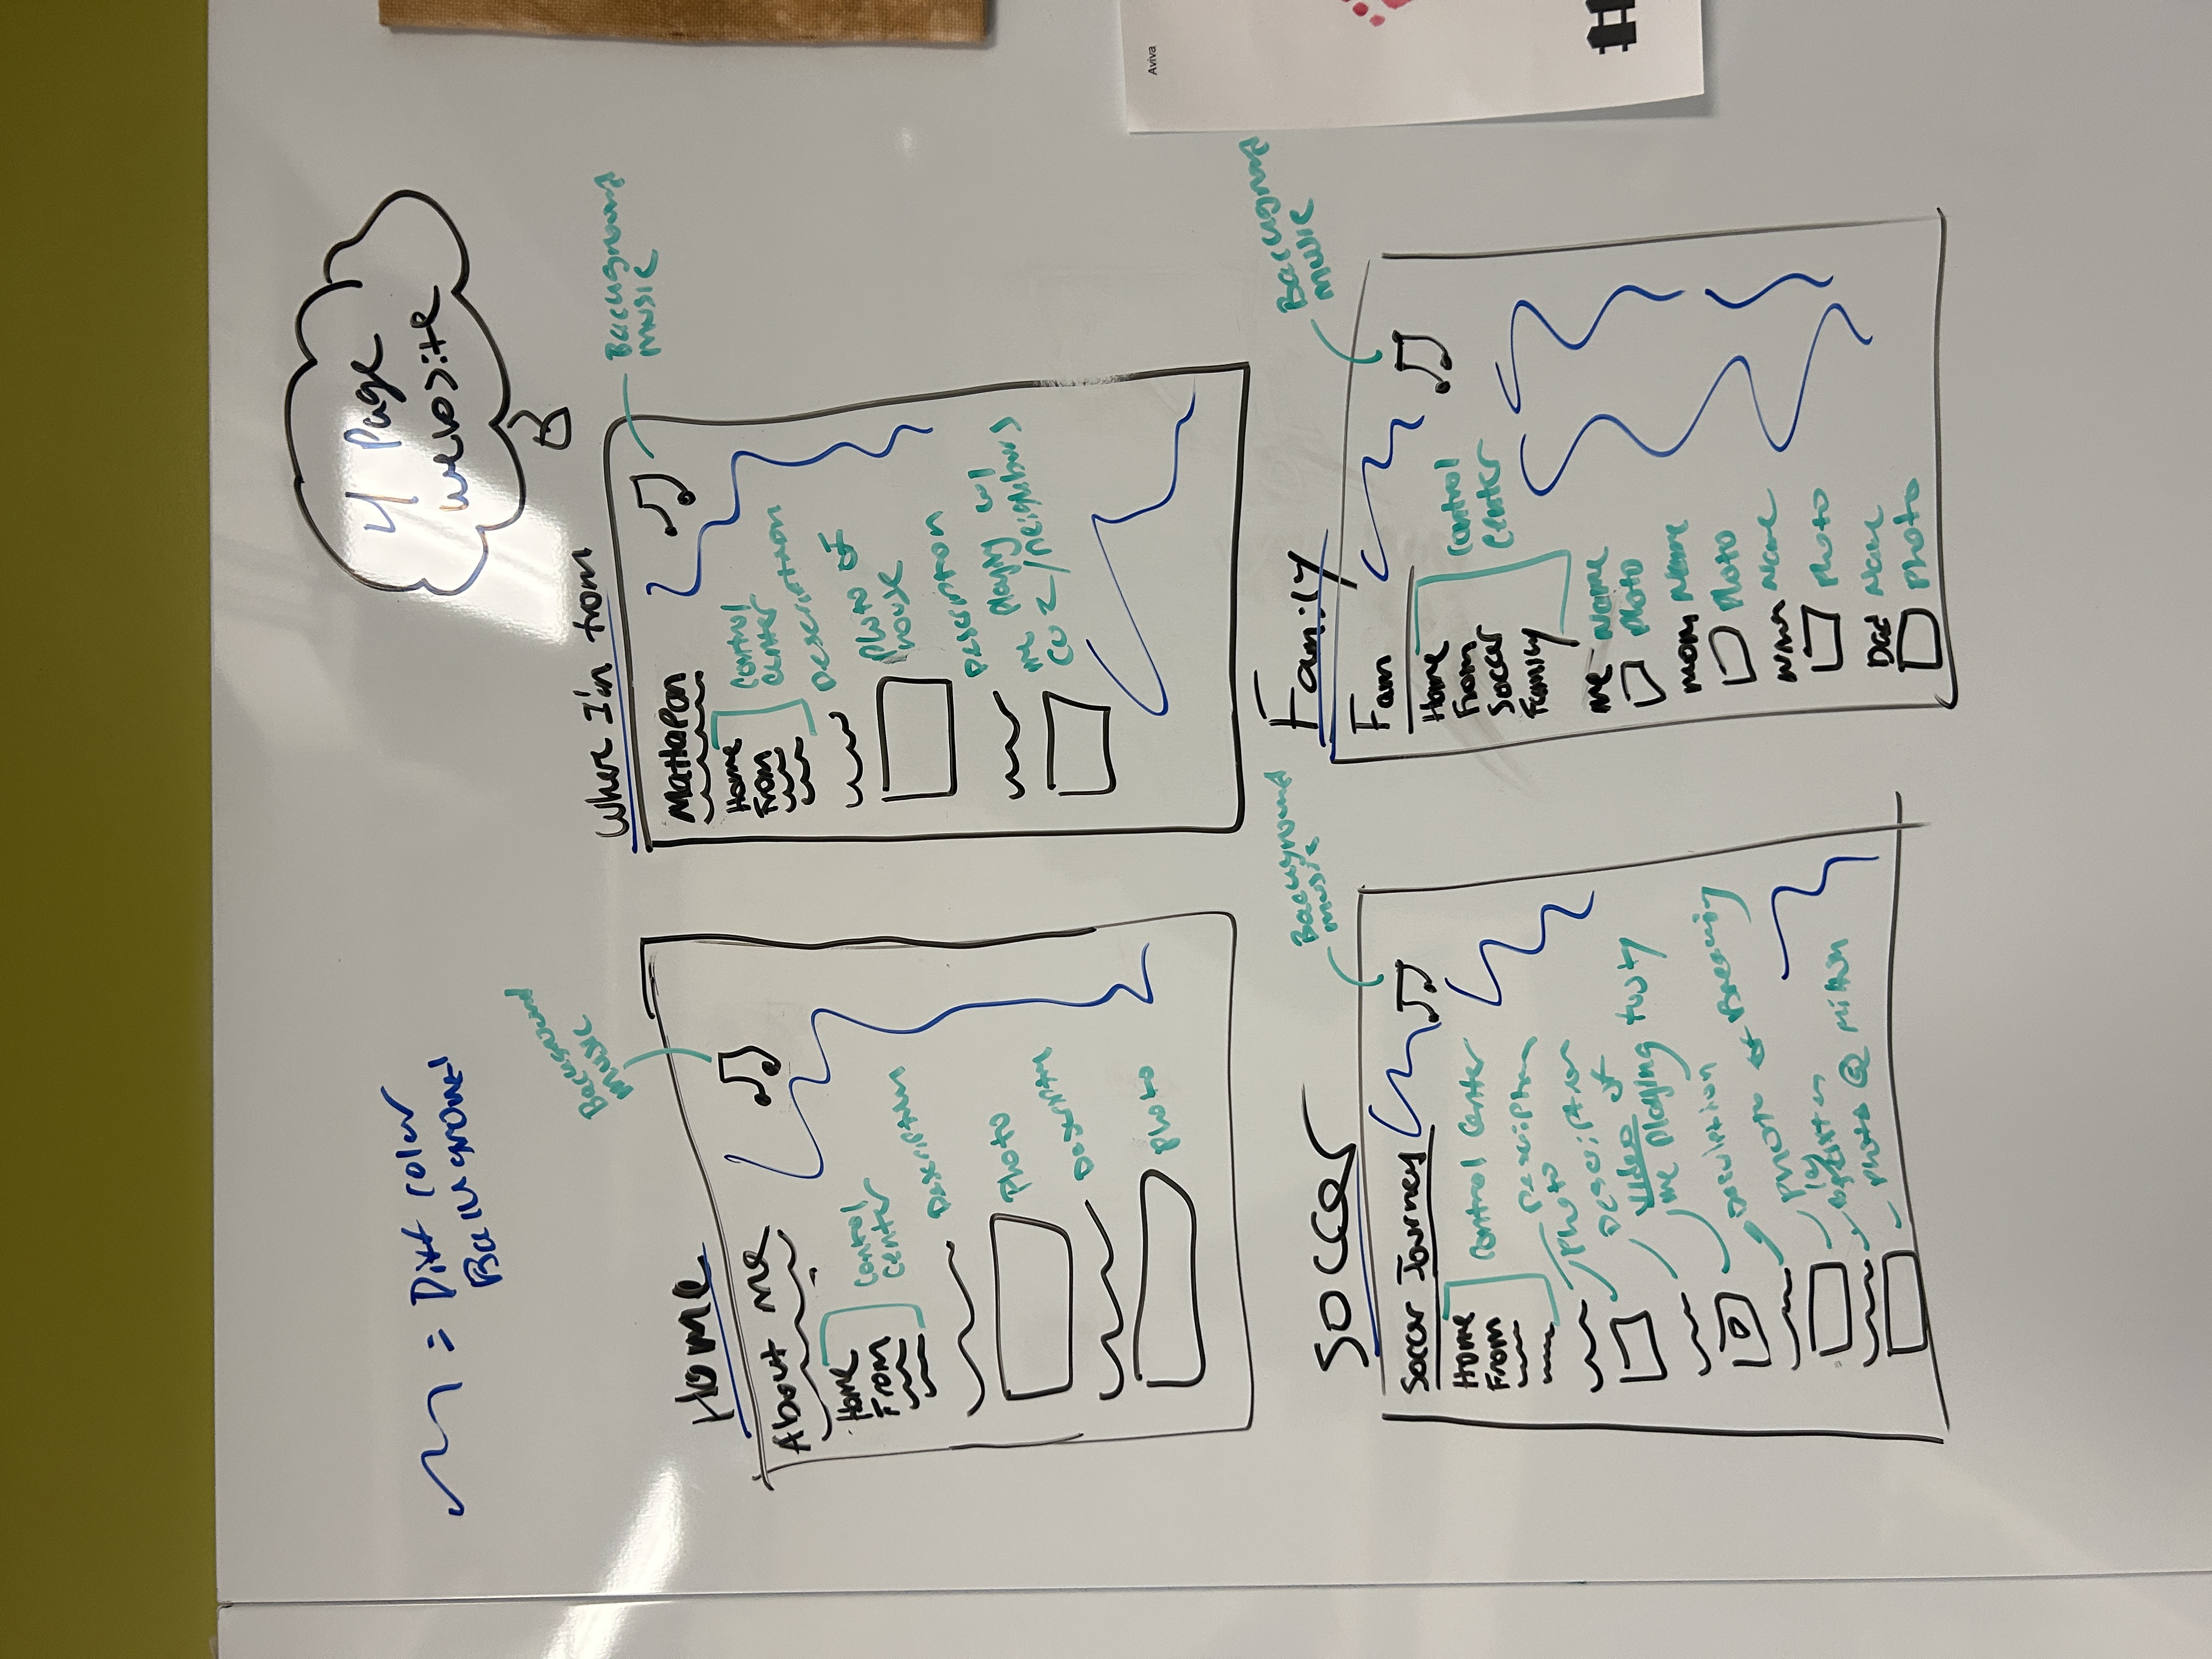 = Diff color
Background
4 Page
website
Home
Background
music
About me
Home
From
Control
center
Description
Photo
Descriptn
Photo
Where I'm from
Background
music
Mattapan
Home
From
Control
center
Description
Photo of
house
Description
me playing w/
cuz/neighbors
Soccer
Background
music
Soccer Journey
Home
From
Control Center
Description
Photo
Description
video of
me playing footy
Description
Photo of Breaking
leg
Photo @ Milton
Family
Background
music
Fam
Home
From
Soccer
Family
Control
Center
me Name
Photo
mom Name
Photo
Name
Photo
Dad Name
Photo
Aviva